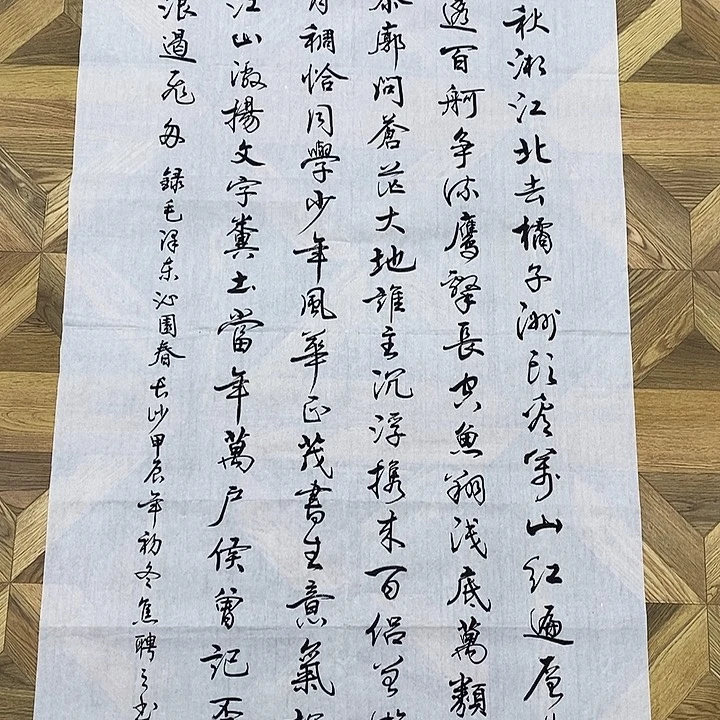 秋湘江北去橘子洲头看万山红遍层
透百舸争流鹰擊長空魚翔浅底萬類
廓问蒼茫大地誰主沉浮携来百侣曾游
稠恰同學少年風華正茂書生意氣揮
江山激揚文字糞土當年萬户侯曾记否
浪遏飛舟 録毛泽东沁園春长沙甲辰年初冬焦聘之书